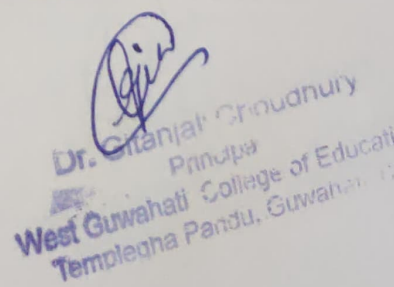 Dr. Gitanjali Choudhury
Principal
West Guwahati College of Educati
Templegha Pandu, Guwaha